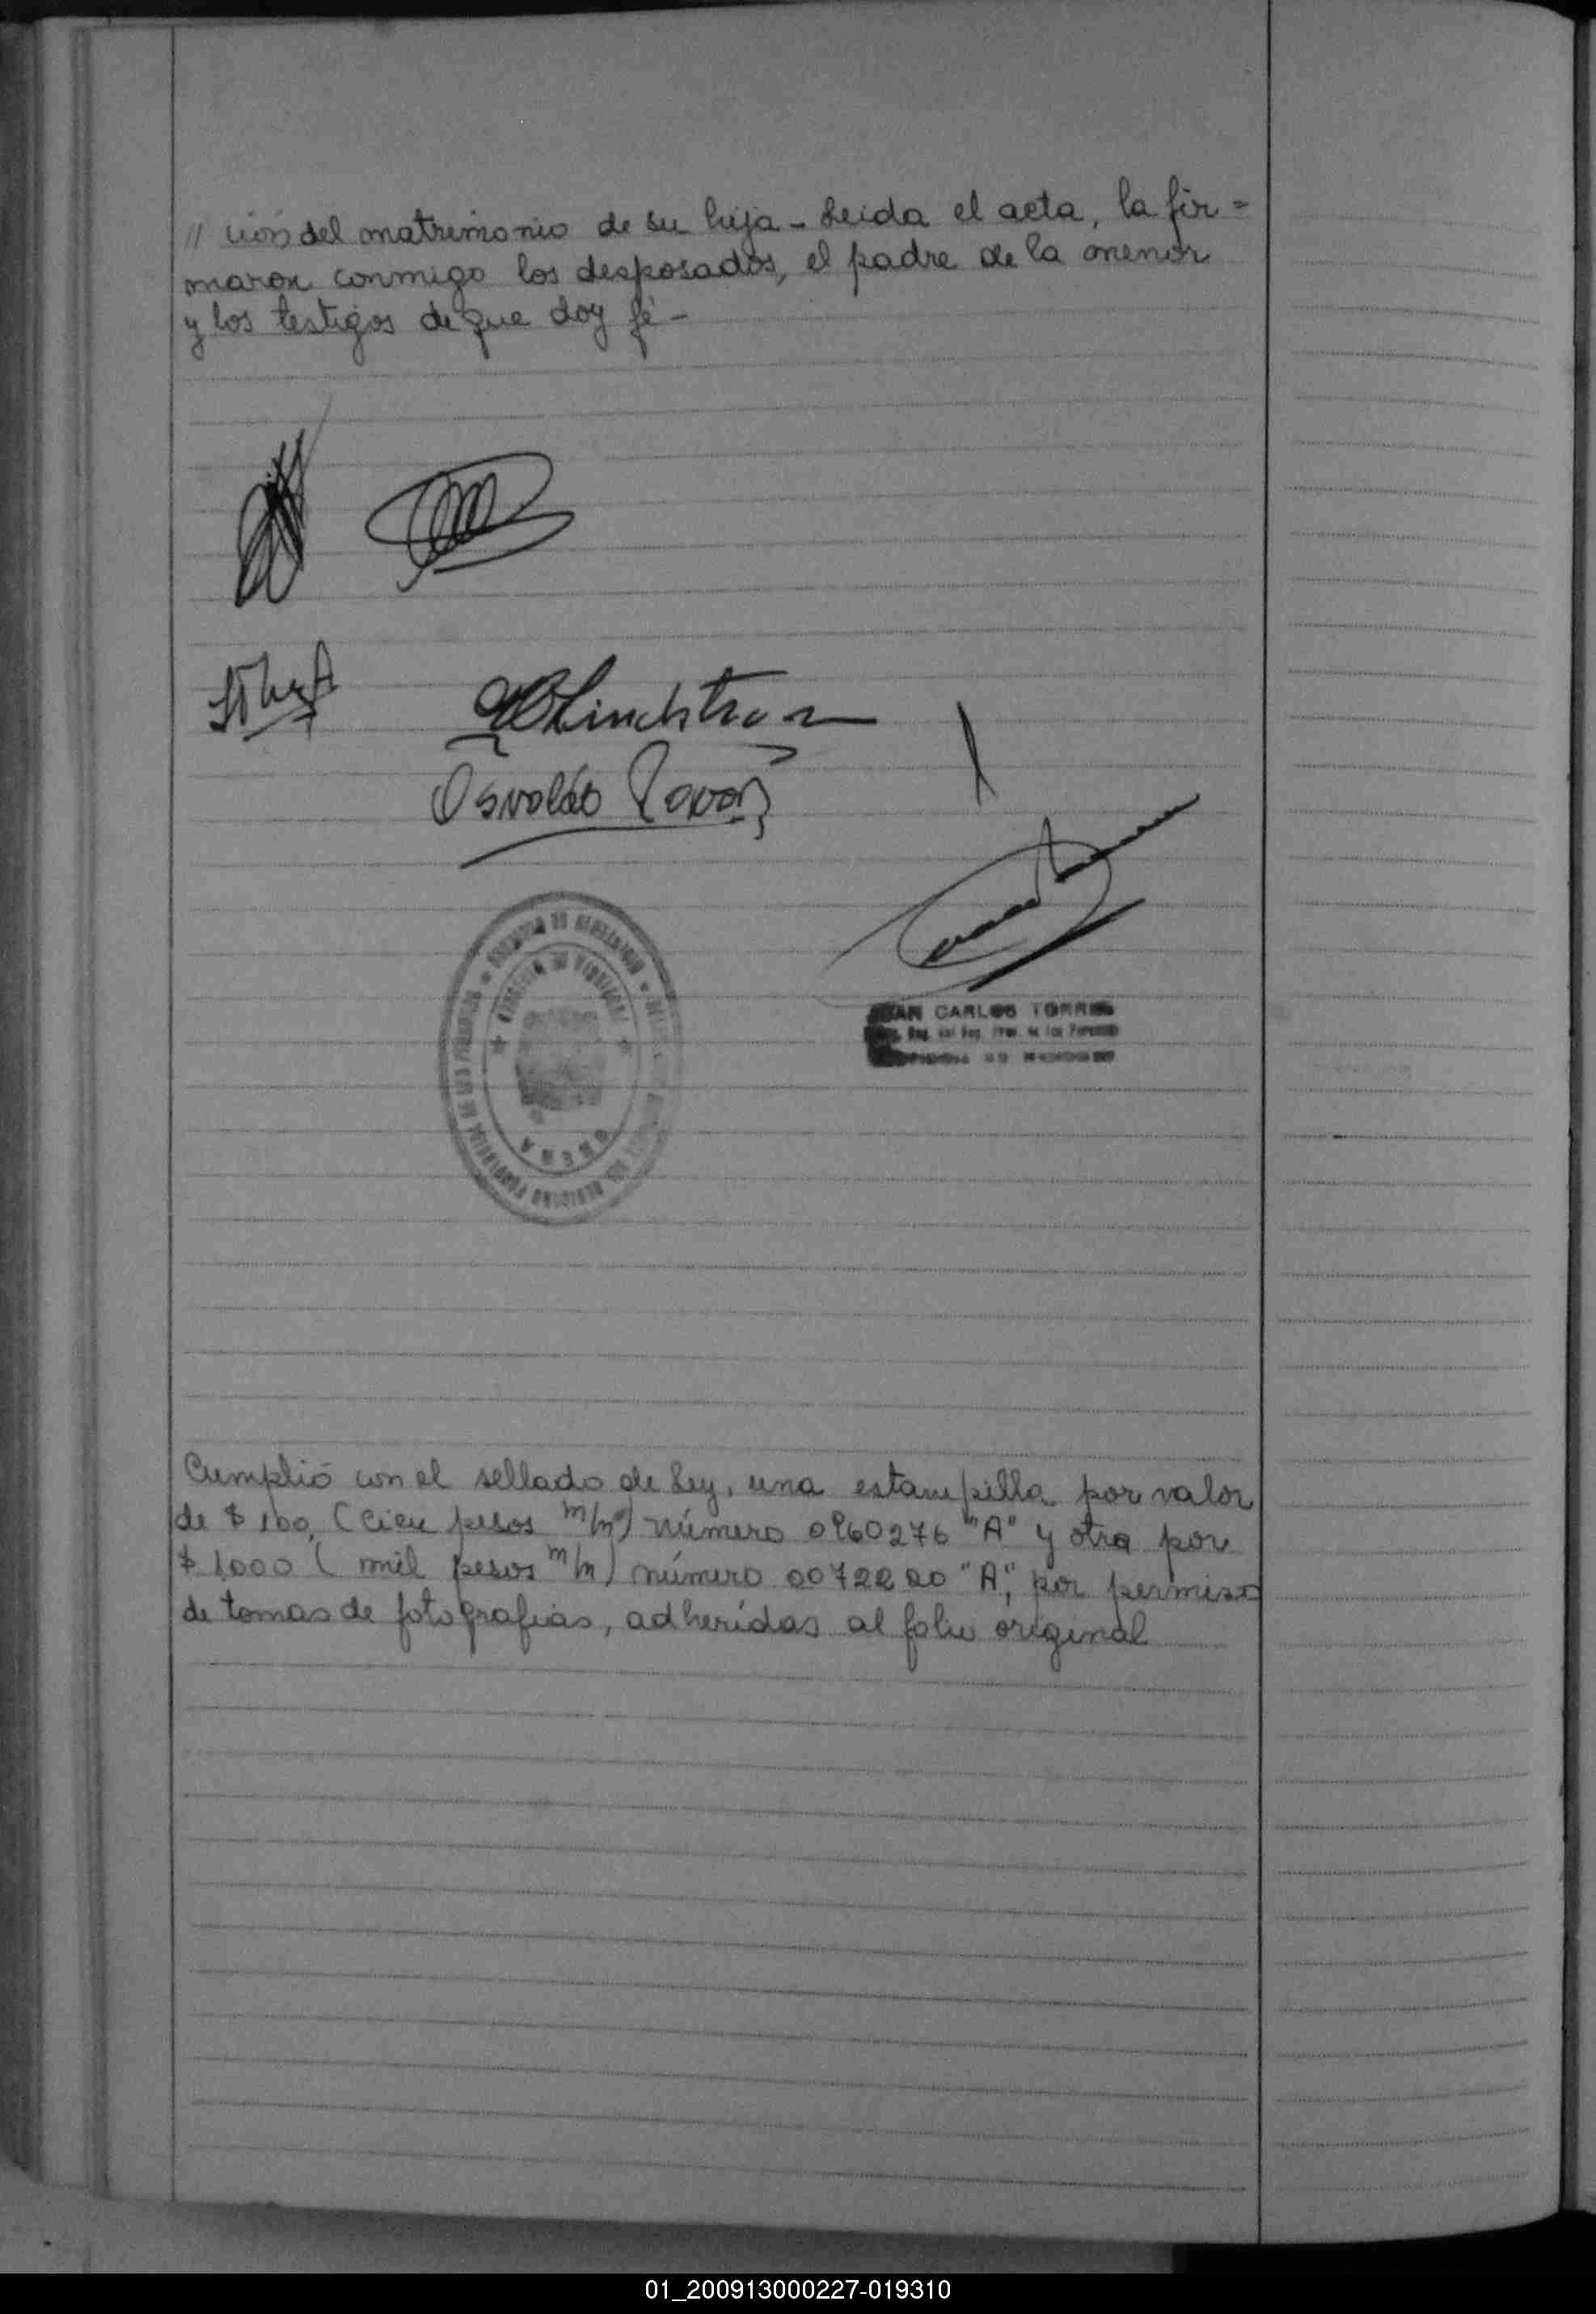 // ción del matrimonio de su hija - Leida el acta, la fir=
maron conmigo los desposados, el padre de la menor
y los testigos de que doy fé -
Lindstrom
Osvaldo Pavon
JUAN CARLOS TORRES
Cumplió con el sellado de Ley, una estampilla por valor
de $ 100, (cien pesos m/n) número 0960276 "A" y otra por
$ 1.000 ( mil pesos m/n) número 0072220 "A", por permiso
de tomas de fotografias, adheridas al folio original
01_200913000227-019310